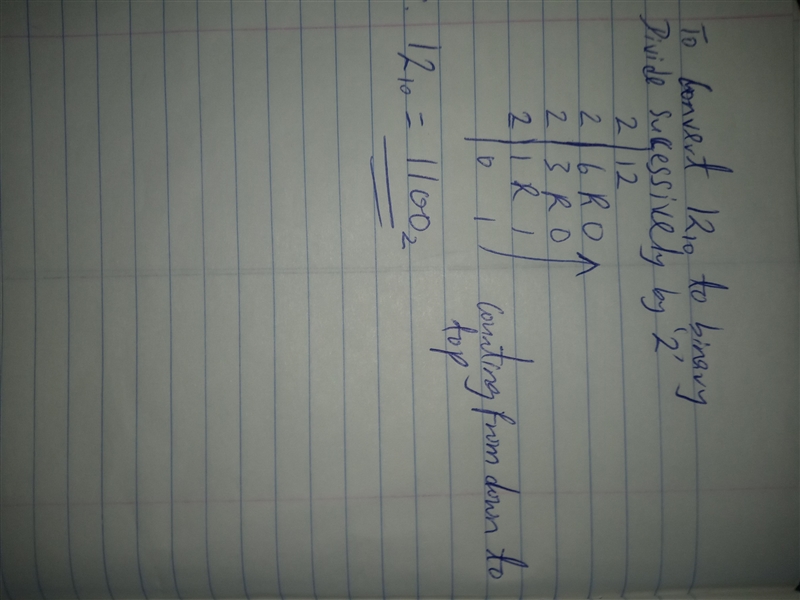 To Convert 12₁₀ to binary
Divide successively by '2'
2 | 12
2 | 6 R 0
2 | 3 R 0
2 | 1 R 1
0 1
Counting from down to
top
12₁₀ = 1100₂